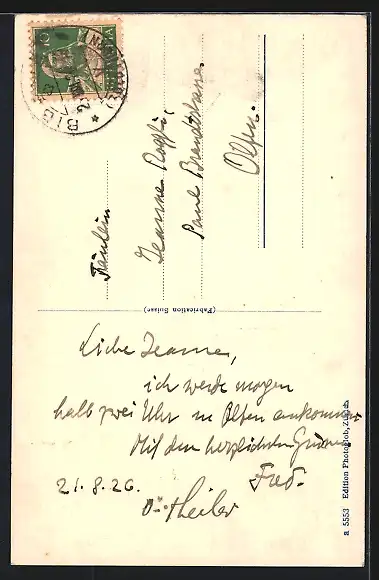 Fräulein
Jeanne
Paul Brandtstrasse.
Olten.
(Fabrication Suisse)
Liebe Jeanne,
ich werde morgen
halb zwei Uhr in Olten ankommen
Mit den herzlichsten Grüssen
Fred.
21.8.26.
Theiler
a 5553 Edition Photoglob, Zürich